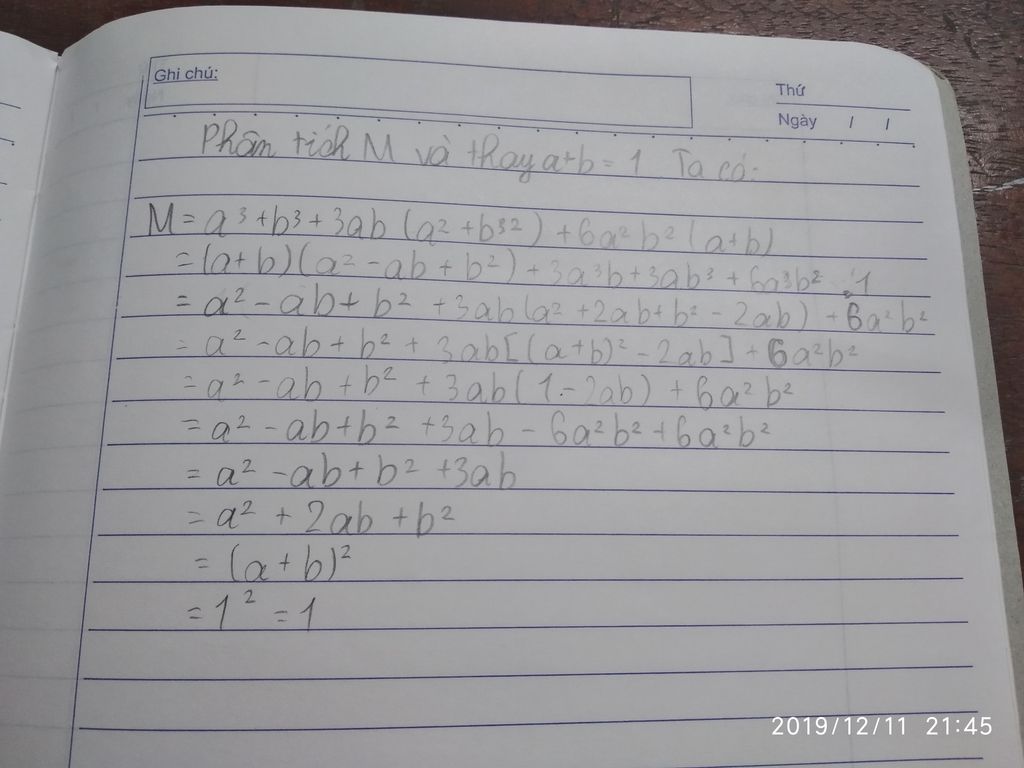 Ghi chú:
Thứ
Ngày / /
Phân tích M và thay a+b = 1. Ta có:
M = a³ + b³ + 3ab (a² + b³²) + 6a²b² (a+b)
= (a+b)(a² - ab + b²) + 3a³b + 3ab³ + 6a³b² .1
= a² - ab + b² + 3ab(a² + 2ab + b² - 2ab) + 6a²b²
= a² - ab + b² + 3ab[(a+b)² - 2ab] + 6a²b²
= a² - ab + b² + 3ab(1 - 2ab) + 6a²b²
= a² - ab + b² + 3ab - 6a²b² + 6a²b²
= a² - ab + b² + 3ab
= a² + 2ab + b²
= (a + b)²
= 1² = 1
2019/12/11 21:45